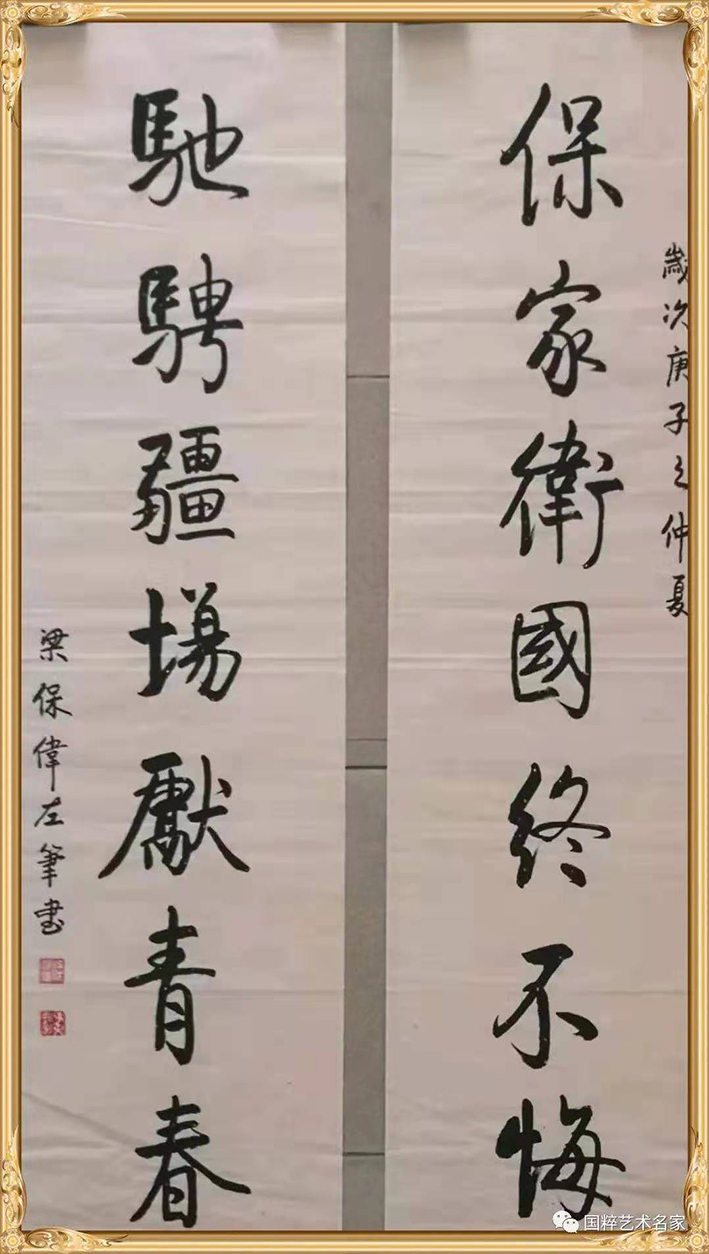 歲次庚子之仲夏
保家衛國終不悔
馳騁疆場獻青春
梁保偉左筆书
国粹艺术名家